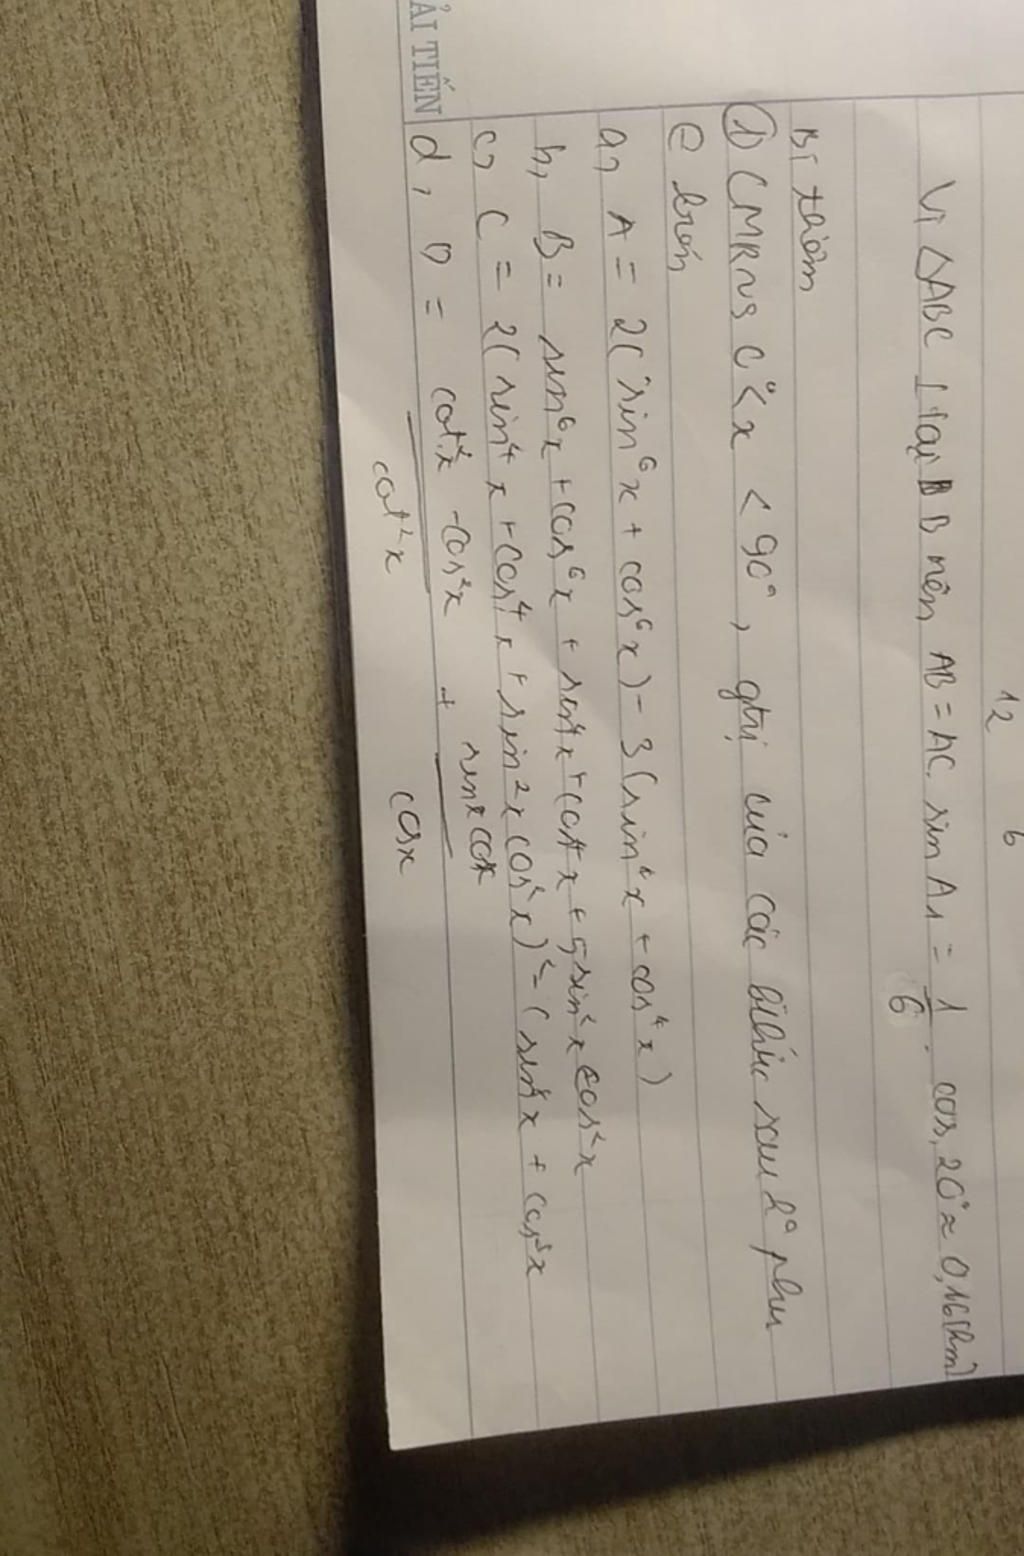 12 6
Vì ΔABC ⊥ tại B nên AB = AC. sin A₁ = 1/6 . cos, 20° ≈ 0,16(hm)
BT thêm
① CMR vs 0° < x < 90°, gtrị của các biểu thức sau k° phụ
e biến
a, A = 2(sin⁶x + cos⁶x) - 3(sin⁴x + cos⁴x)
b, B = sin⁶x + cos⁶x + sin⁴x + cos⁴x + 5sin²x cos²x
c, C = 2(sin⁴x + cos⁴x + sin²x cos²x)² - (sin⁸x + cos⁸x
d, D = cot²x - cos²x / cot²x + sinx cosx / cosx
ẢI TIẾN